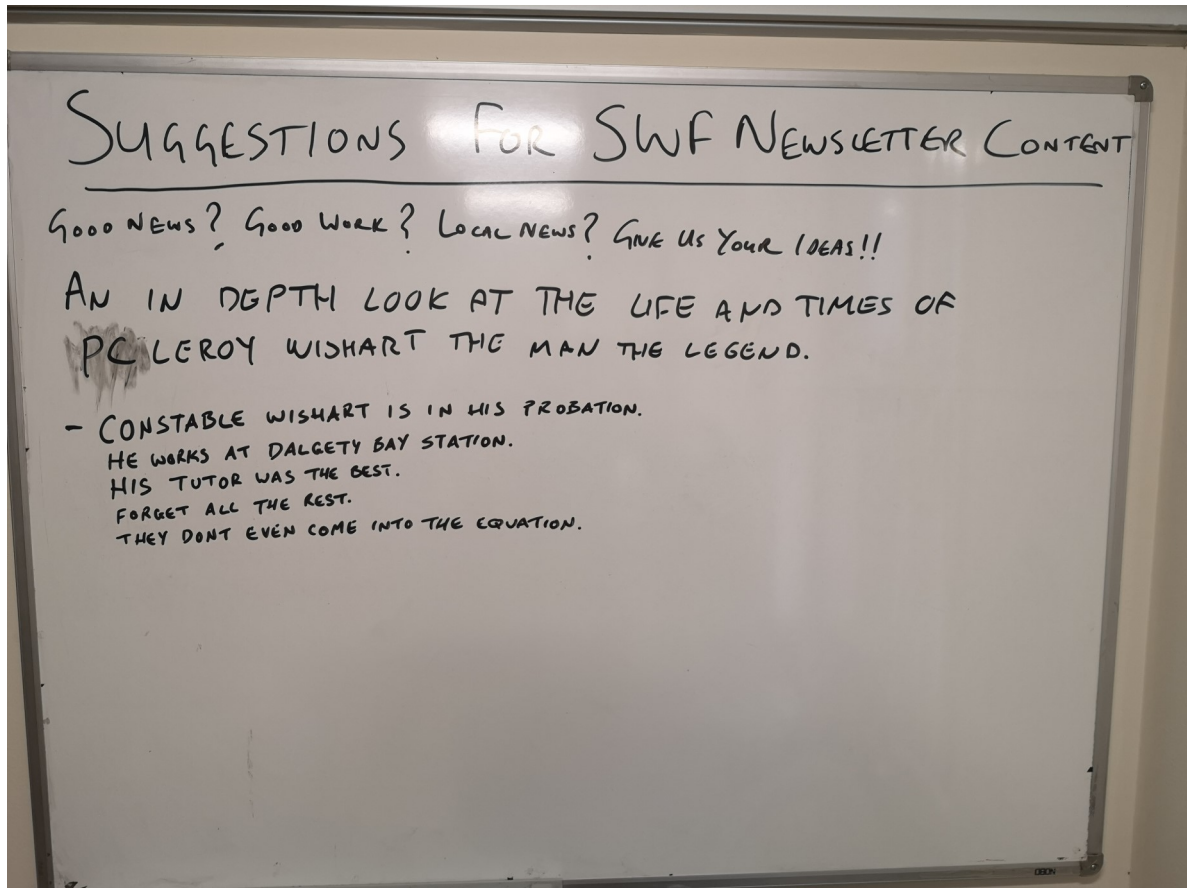 SUGGESTIONS FOR SWF NEWSLETTER CONTENT
GOOD NEWS? GOOD WORK? LOCAL NEWS? GIVE US YOUR IDEAS!!
AN IN DEPTH LOOK AT THE LIFE AND TIMES OF
PC LEROY WISHART THE MAN THE LEGEND.
- CONSTABLE WISHART IS IN HIS PROBATION.
HE WORKS AT DALGETY BAY STATION.
HIS TUTOR WAS THE BEST.
FORGET ALL THE REST.
THEY DONT EVEN COME INTO THE EQUATION.